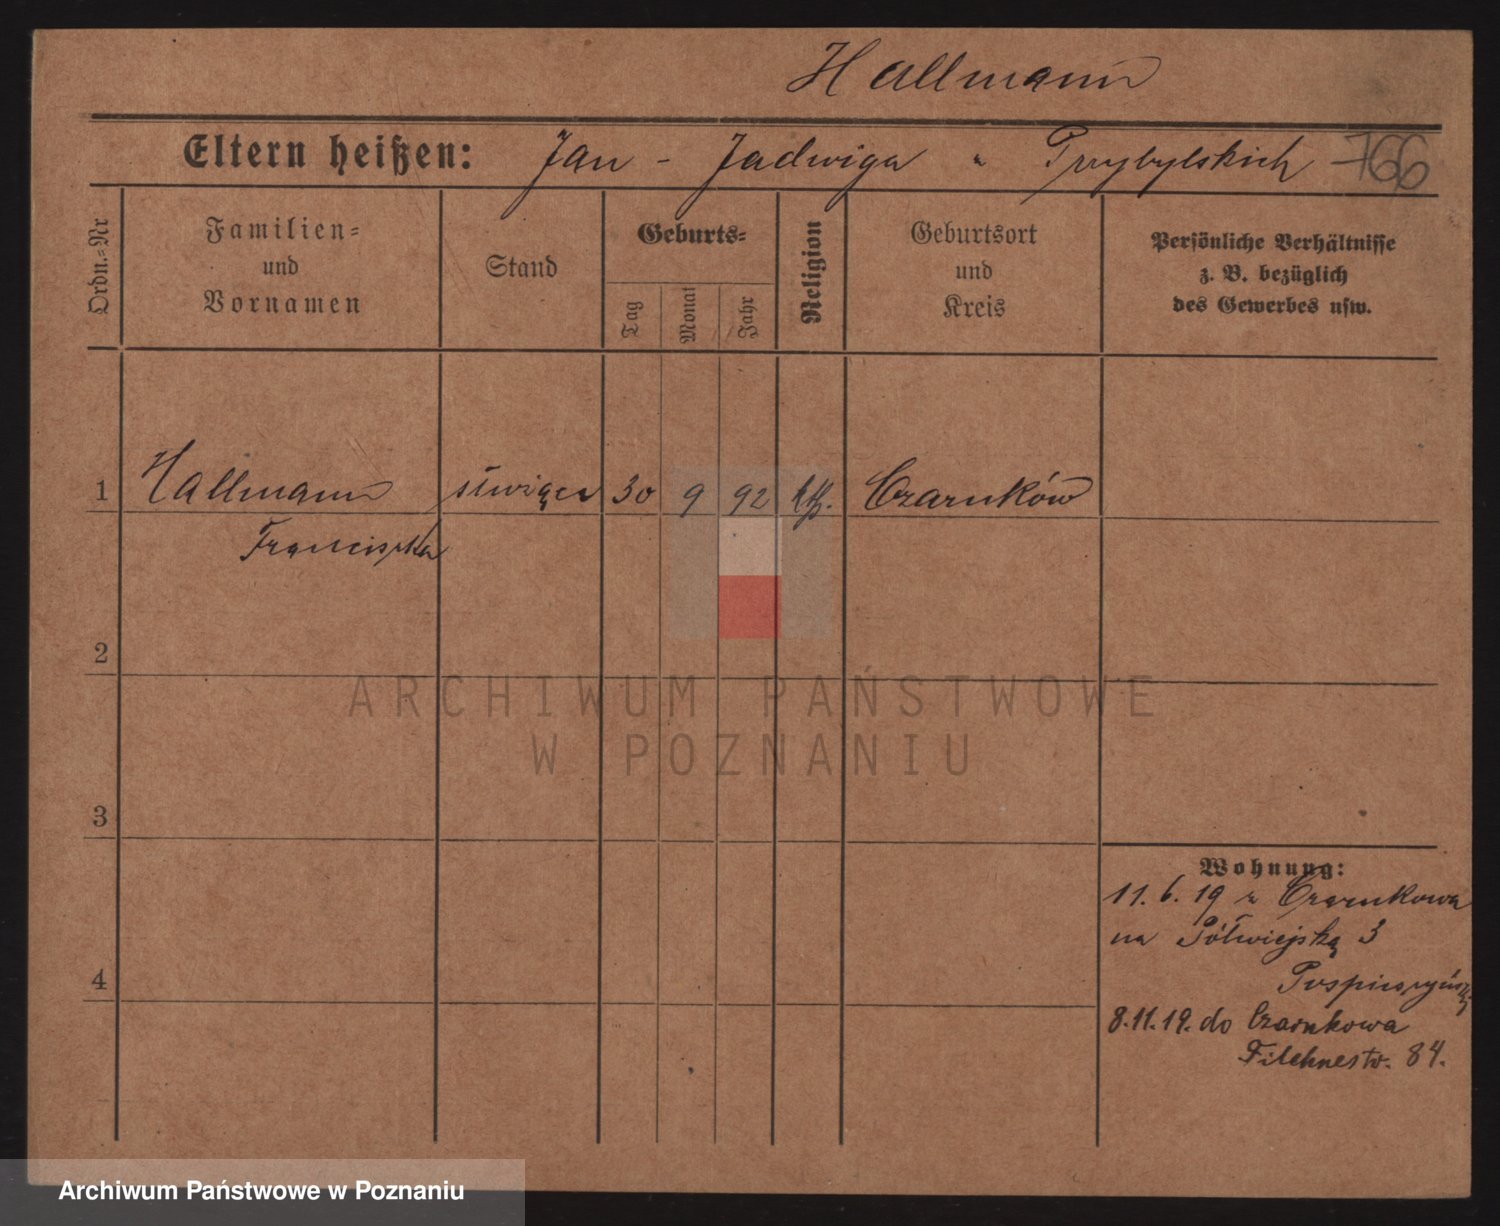 Hallmann
Eltern heißen: Jan - Jadwiga z Przybylskich 166
Ordn.=Nr
Familien=
und
Vornamen
Stand
Geburts=
Tag
Monat
Jahr
Religion
Geburtsort
und
Kreis
Persönliche Verhältnisse
z. B. bezüglich
des Gewerbes usw.
1 Hallmann 30 9 92 Czarnków
Franciszka
2
ARCHIWUM PAŃSTWOWE
W POZNANIU
3
Wohnung:
11. 6. 19 z Czarnkowa
na Półwiejską 3
4
8.11.19. do Czarnkowa
Filehnestr. 84.
Archiwum Państwowe w Poznaniu